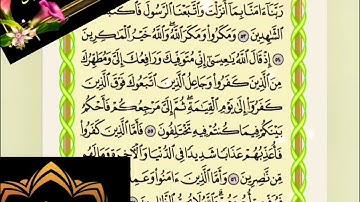 رَبَّنَآ ءَامَنَّا بِمَآ أَنزَلْتَ وَٱتَّبَعْنَا ٱلرَّسُولَ فَٱكْتُبْنَا
ٱلشَّٰهِدِينَ ٥٣ وَمَكَرُوا۟ وَمَكَرَ ٱللَّهُ وَٱللَّهُ خَيْرُ ٱلْمَٰكِرِينَ
٥٤ إِذْ قَالَ ٱللَّهُ يَٰعِيسَىٰٓ إِنِّى مُتَوَفِّيكَ وَرَافِعُكَ إِلَىَّ وَمُطَهِّرُكَ
مِنَ ٱلَّذِينَ كَفَرُوا۟ وَجَاعِلُ ٱلَّذِينَ ٱتَّبَعُوكَ فَوْقَ ٱلَّذِينَ
كَفَرُوٓا۟ إِلَىٰ يَوْمِ ٱلْقِيَٰمَةِ ثُمَّ إِلَىَّ مَرْجِعُكُمْ فَأَحْكُمُ
بَيْنَكُمْ فِيمَا كُنتُمْ فِيهِ تَخْتَلِفُونَ ٥٥ فَأَمَّا ٱلَّذِينَ كَفَرُوا۟
فَأُعَذِّبُهُمْ عَذَابًا شَدِيدًا فِى ٱلدُّنْيَا وَٱلْءَاخِرَةِ وَمَا لَهُم
مِّن نَّٰصِرِينَ ٥٦ وَأَمَّا ٱلَّذِينَ ءَامَنُوا۟ وَعَمِلُوا۟